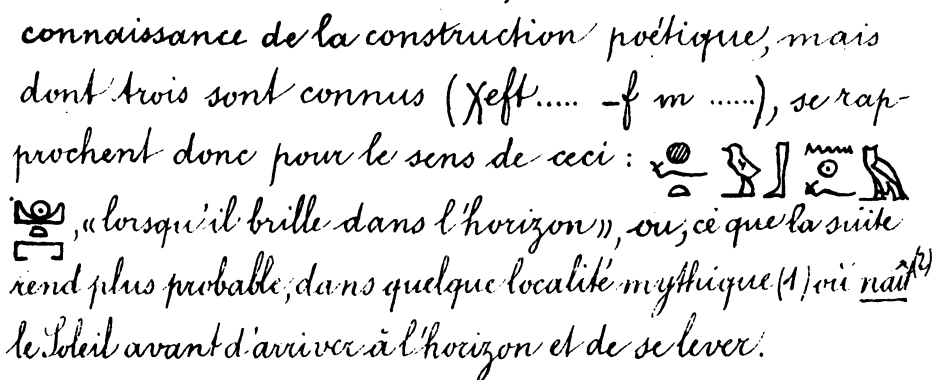 connaissance de la construction poétique, mais
dont trois sont connus (χeft..... -f m ......), se rap-
prochent donc pour le sens de ceci : 𓐍𓆑𓏏 𓅱𓃀𓈖𓇳𓆑𓅓
𓈌𓏏𓉐, «lorsqu'il brille dans l'horizon», ou, ce que la suite
rend plus probable, dans quelque localité mythique (1) où naît (2)
le Soleil avant d'arriver à l'horizon et de se lever.